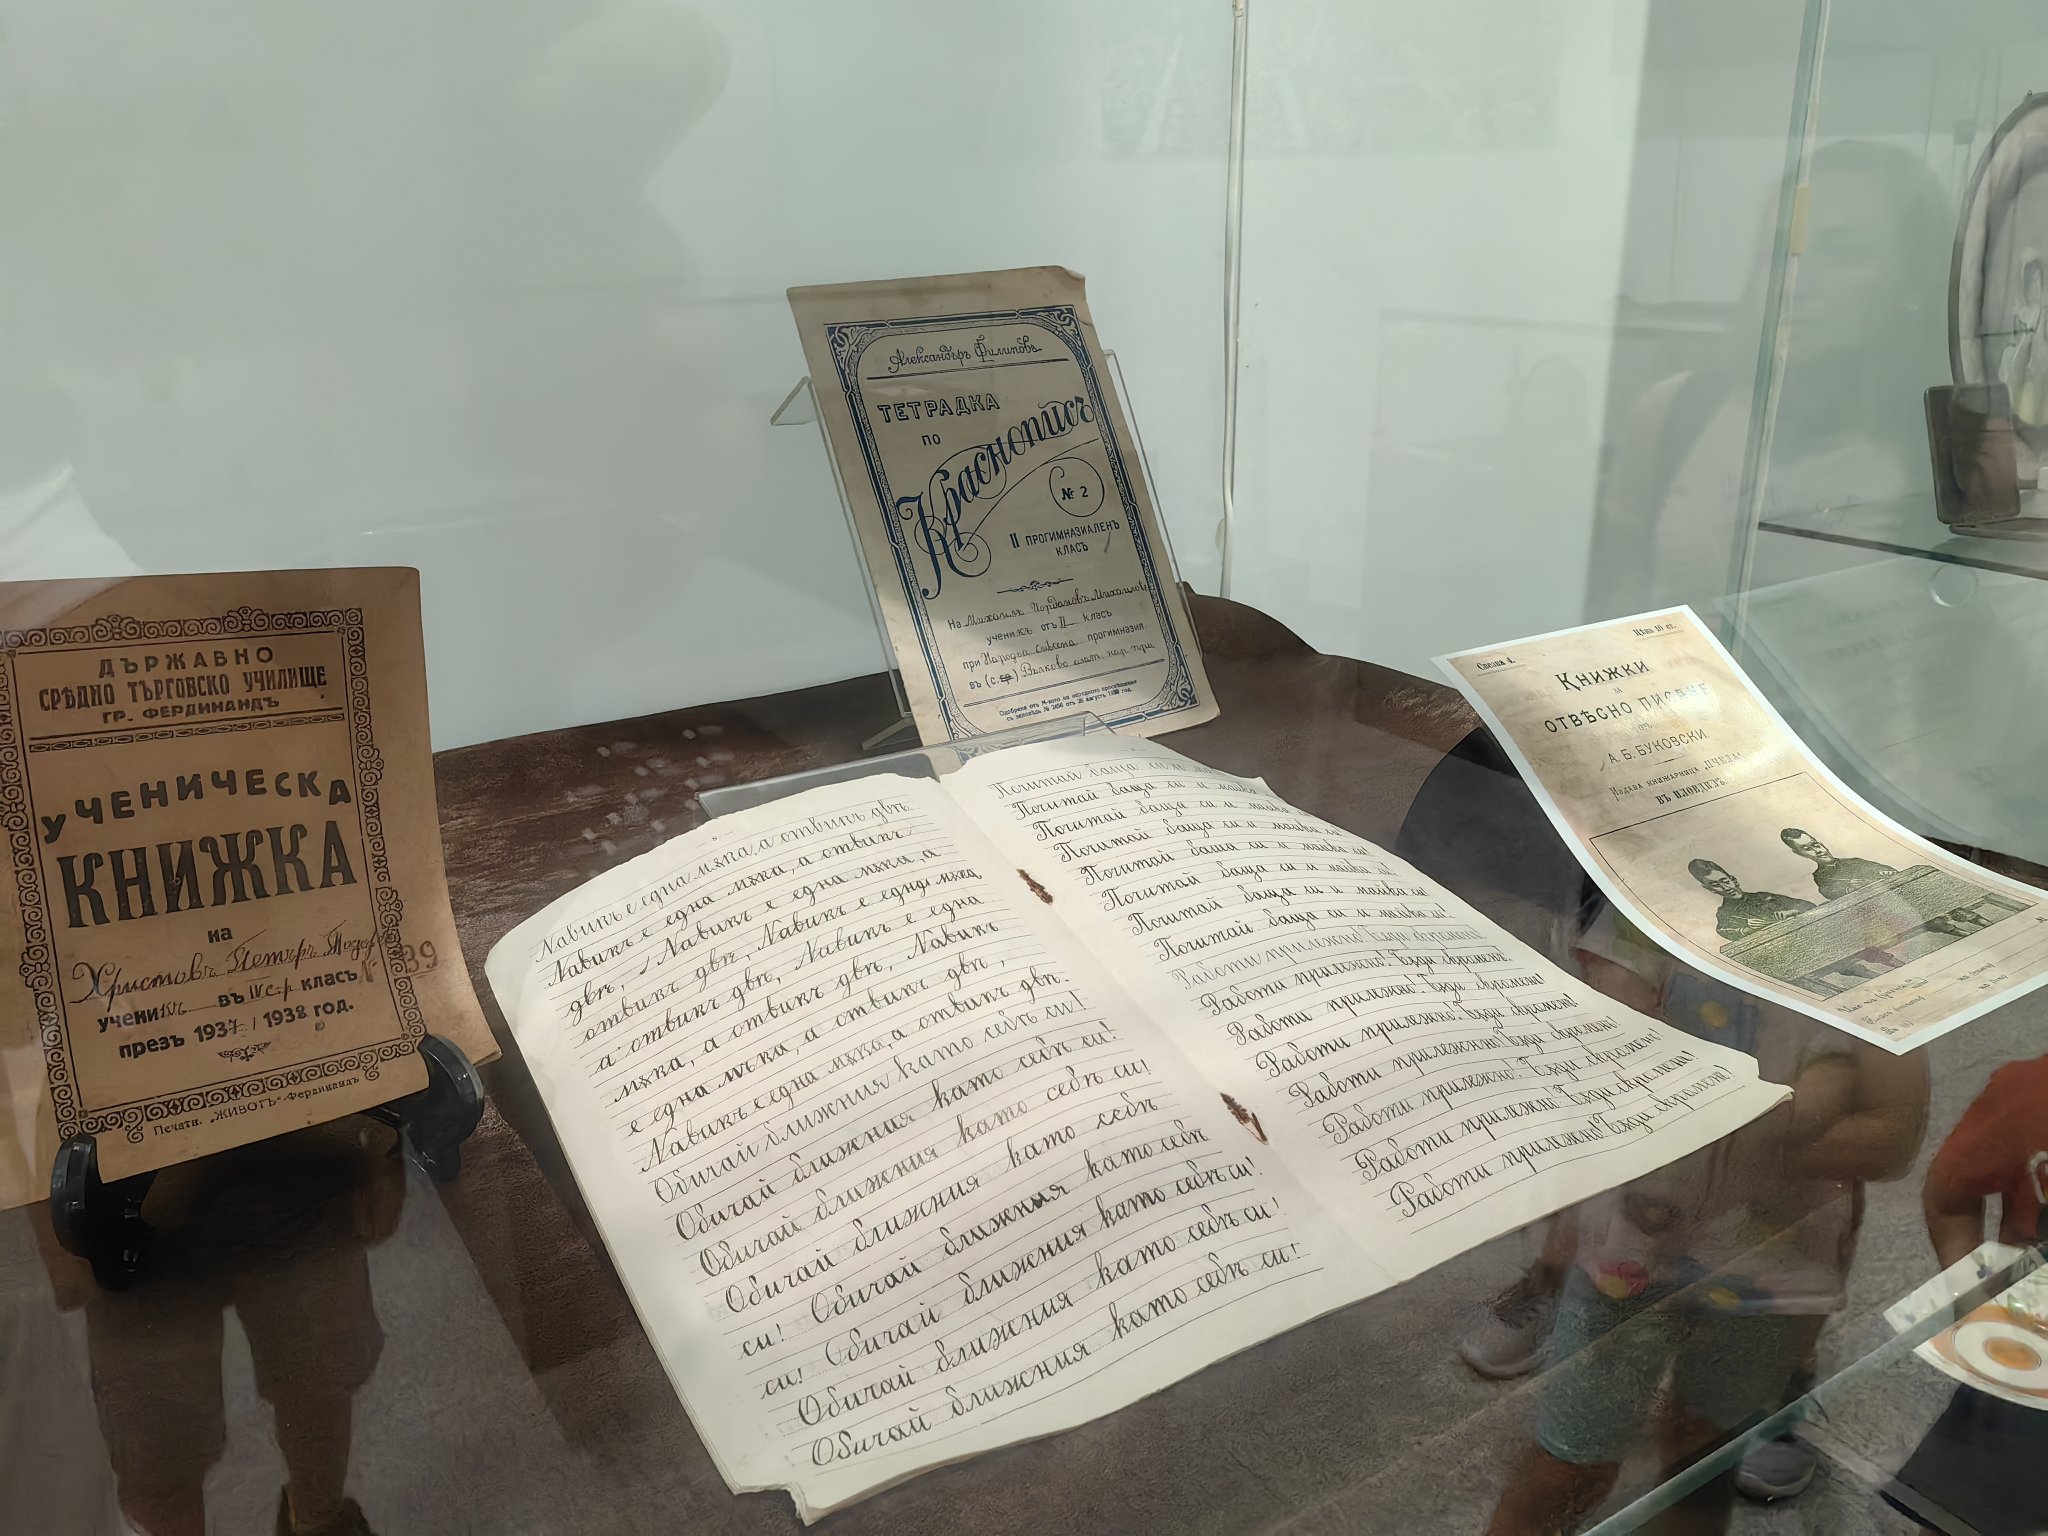 ДЪРЖАВНО
СРѢДНО ТЪРГОВСКО УЧИЛИЩЕ
ГР. ФЕРДИНАНДЪ
УЧЕНИЧЕСКА
КНИЖКА
на
Христовъ Петъръ
ученикъ въ IV класъ
презъ 1937 / 1938 год.
Печатн. „ЖИВОТЪ“-Фердинандъ
Александъръ Филиповъ
ТЕТРАДКА
ПО
Краснописъ
№ 2
II ПРОГИМНАЗИАЛЕНЪ
КЛАСЪ
На Михаилъ Йордановъ Михаиловъ
ученикъ отъ II класъ
при Народна смѣсена прогимназия
въ (с.
Одобрена отъ М-вото на народното просвѣщение
съ заповѣдь № отъ августъ год.
8
Навикъ е една мѫка, а отвикъ двѣ
Навикъ е една мѫка, а отвикъ
двѣ, Навикъ е една мѫка, а
отвикъ двѣ, Навикъ е една мѫка
а отвикъ двѣ, Навикъ е една
мѫка, а отвикъ двѣ, Навикъ
е една мѫка, а отвикъ двѣ,
Навикъ е една мѫка, а отвикъ двѣ.
Обичай ближния като себѣ си!
Обичай ближния като себѣ си!
Обичай ближния като себѣ си!
Обичай ближния като себѣ
си! Обичай ближния като себѣ
си! Обичай ближния като себѣ си!
Обичай ближния като себѣ си!
Обичай ближния като себѣ си!
Почитай баща си и
Почитай баща си и майка
Почитай баща си и майка
Почитай баща си и майка си!
Почитай баща си и майка си!
Почитай баща си и майка си!
Почитай баща си и майка си!
Почитай баща си и майка си!
Работи прилежно! Бѫди скроменъ!
Работи прилежно! Бѫди скроменъ!
Работи прилежно! Бѫди скроменъ!
Работи прилежно! Бѫди скроменъ!
Работи прилежно! Бѫди скроменъ!
Работи прилежно! Бѫди скроменъ!
Работи прилежно! Бѫди скроменъ!
Работи прилежно! Бѫди скроменъ!
Свезка 4. Цѣна 10 ст.
Книжки
за
ОТВѢСНО ПИСАНЕ
отъ
А. Б. БУКОВСКИ.
Издава книжарница „ПЧЕЛА“
ВЪ ПЛОВДИВЪ.